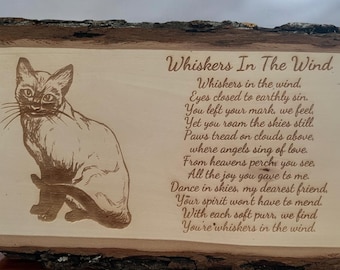 Whiskers In The Wind
Whiskers in the wind,
Eyes closed to earthly sin.
You left your mark, we feel,
Yet you roam the skies still.
Paws tread on clouds above,
where angels sing of love.
From heavens perch, you see,
All the joy you gave to me.
Dance in skies, my dearest friend,
Your spirit won't have to mend.
With each soft purr, we find
You're whiskers in the wind.